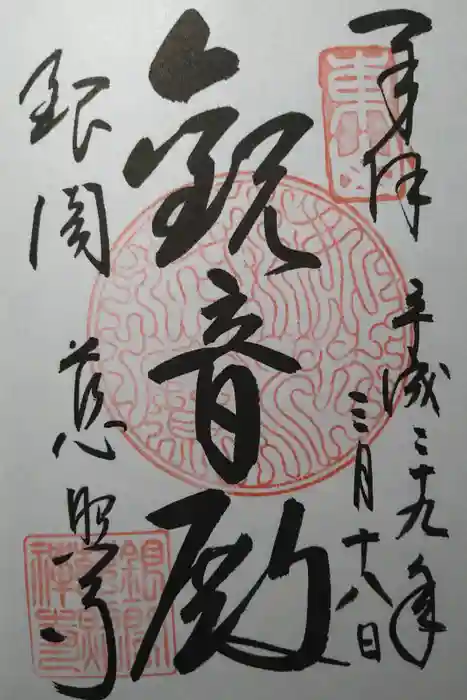 奉拝
平成二十九年
三月十八日
観音殿
銀閣
慈照寺